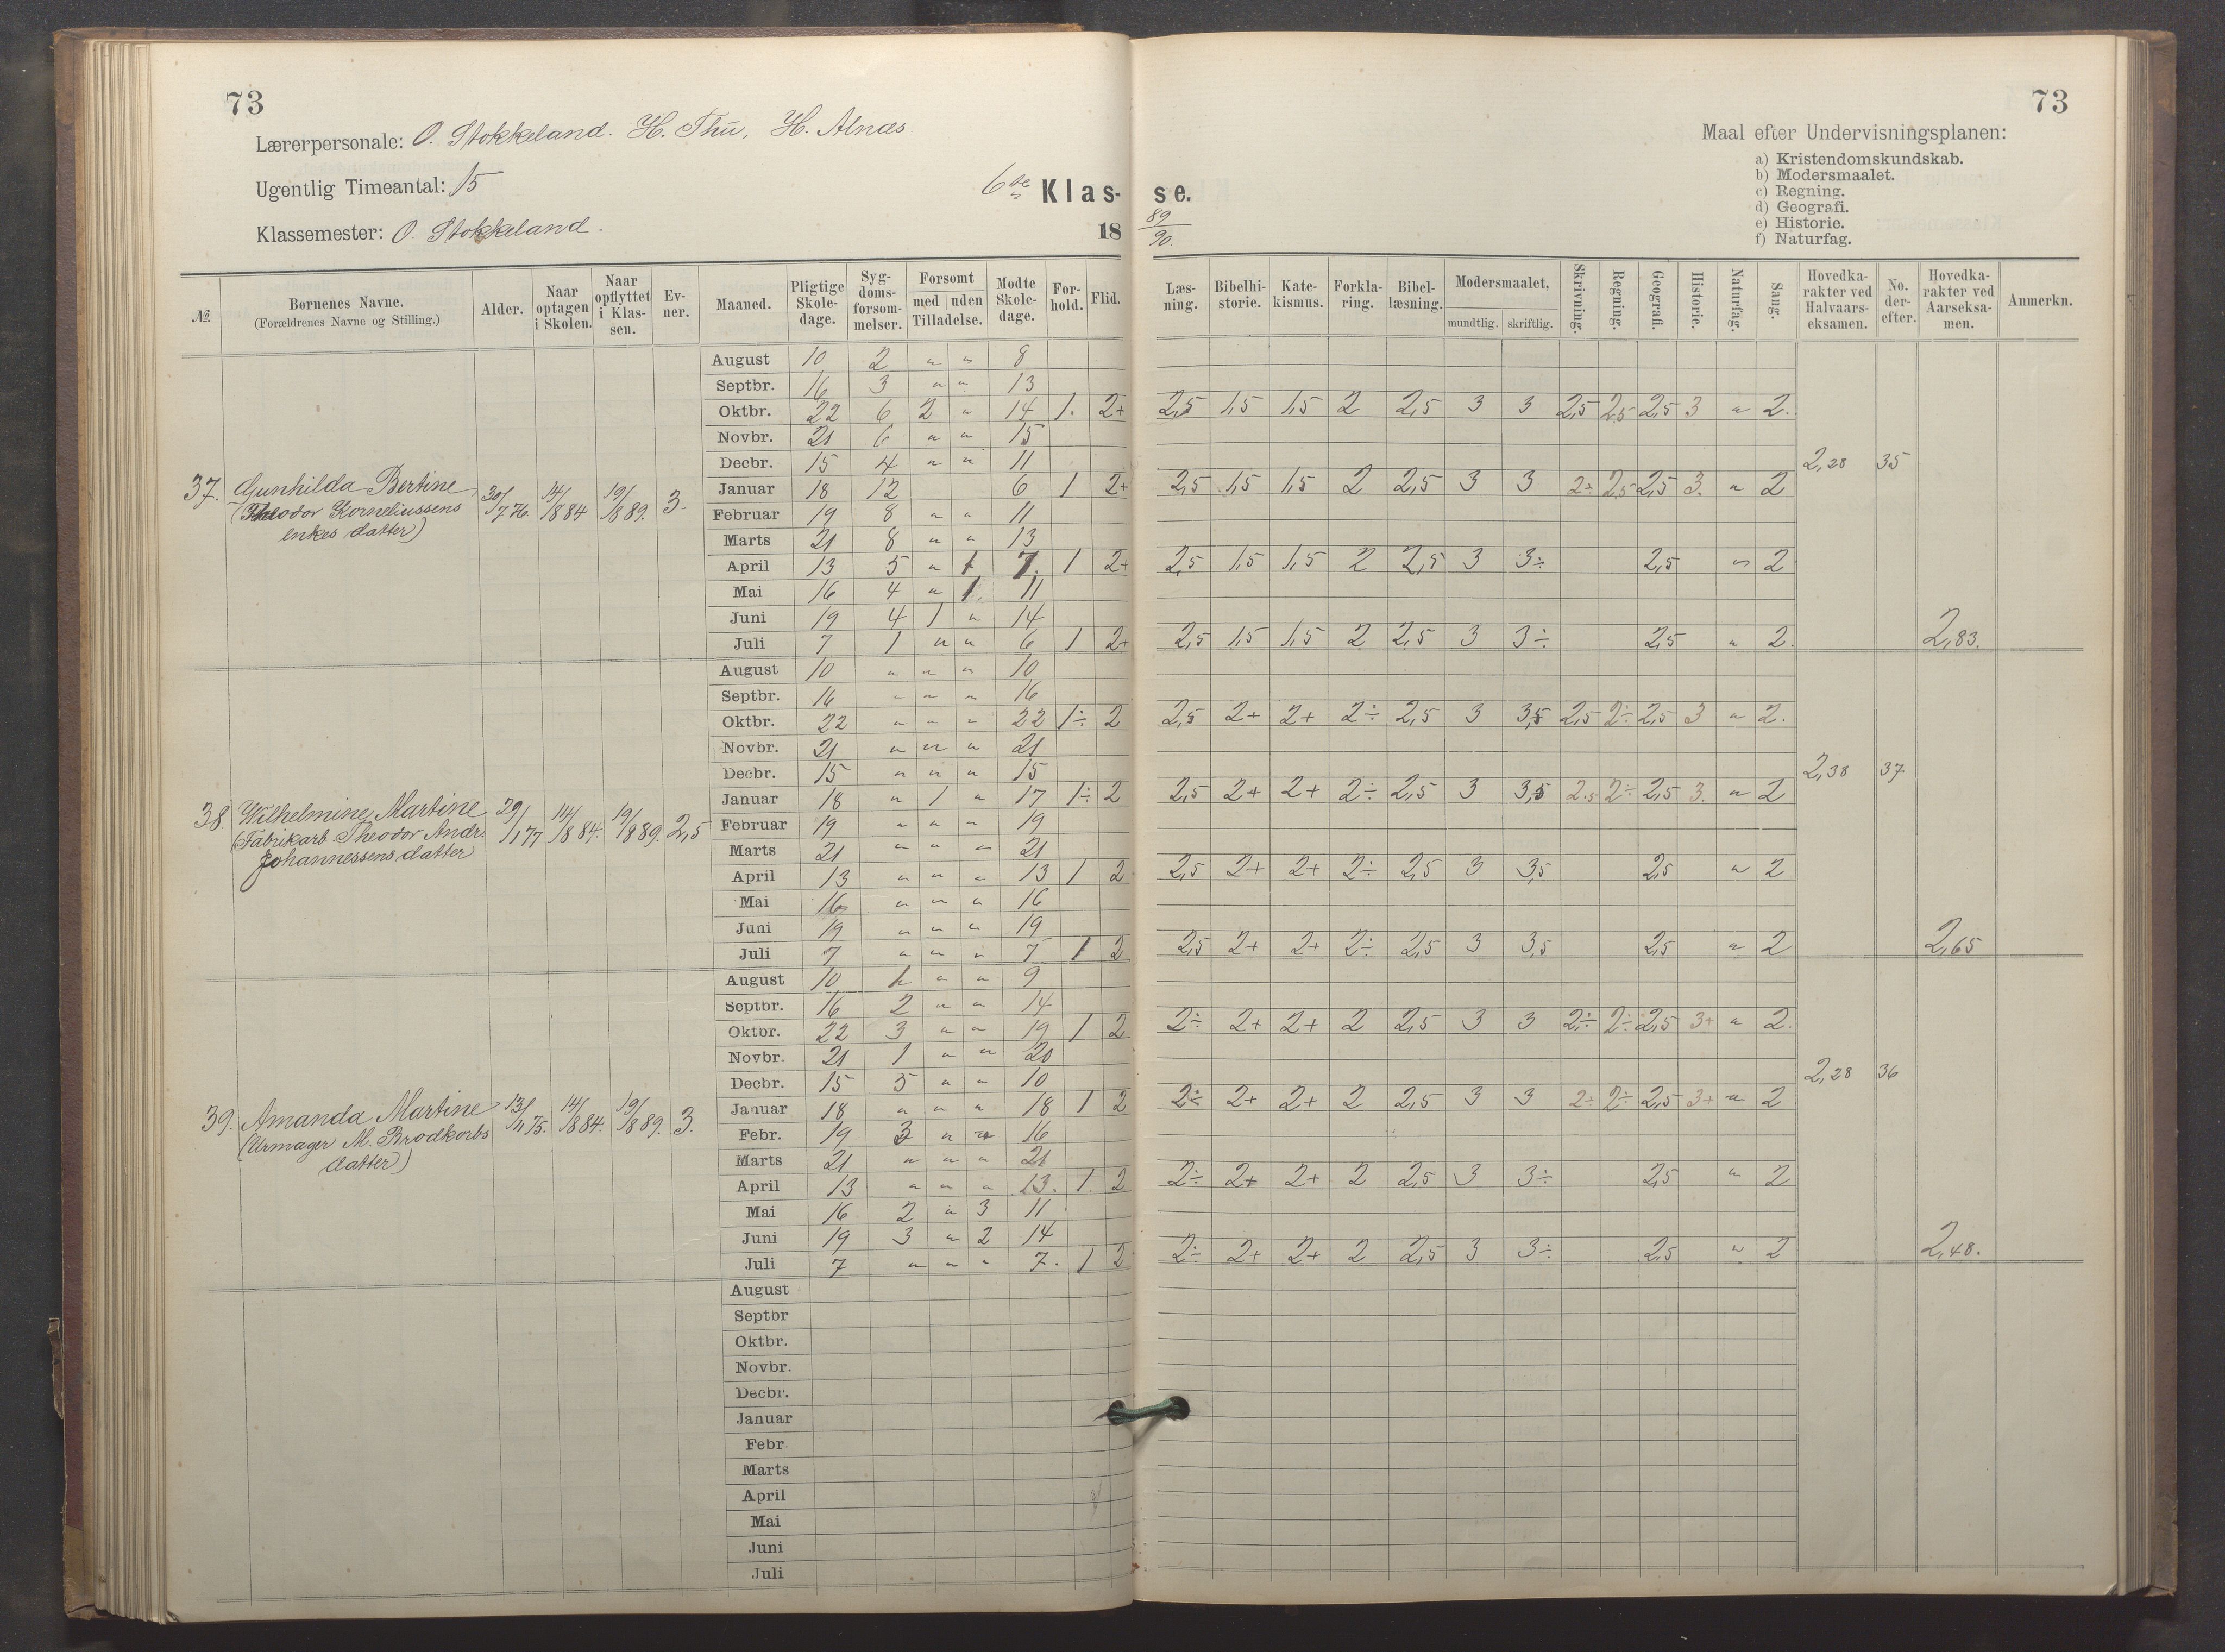 73
Lærerpersonale: O. Stokkeland. H. Thu, H. Alnæs.
Ugentlig Timeantal: 15
6te Klas-
Klassemester: O. Stokkeland.
18
№ Børnenes Navne. (Forældrenes Navne og Stilling.) Alder. Naar optagen i Skolen. Naar opflyttet i Klassen. Evner. Maaned. Pligtige Skoledage. Sygdomsforsømmelser. Forsømt med uden Tilladelse. Mødte Skoledage. Forhold. Flid.
August 10 2 " " 8
Septbr. 16 3 " " 13
Oktbr. 22 6 2 " 14 1. 2+
Novbr. 21 6 " " 15
Decbr. 15 4 " " 11
37. Gunhilda Bertine 30/7 76. 14/8 84 19/8 89. 3.
(Theodor Korneliussens
enkes datter)
Januar 18 12 6 1 2+
Februar 19 8 " " 11
Marts 21 8 " " 13
April 13 5 " 1 7. 1 2+
Mai 16 4 " 1. 11
Juni 19 4 1 " 14
Juli 7 1 " " 6 1 2+
August 10 " " " 10
Septbr. 16 " " " 16
Oktbr. 22 " " " 22 1÷ 2
Novbr. 21 " " " 21
Decbr. 15 " " " 15
38. Wilhelmine Martine 29/1 77 14/8 84. 19/8 89. 2,5
(Fabrikarb. Theodor Andr.
Johannessens datter
Januar 18 " 1 " 17 1÷ 2
Februar 19 " " " 19
Marts 21 " " " 21
April 13 " " " 13 1 2
Mai 16 " " " 16
Juni 19 " " " 19
Juli 7 " " " 7 1 2
August 10 1 " " 9
Septbr. 16 2 " " 14
Oktbr. 22 3 " " 19 1 2
Novbr. 21 1 " " 20
Decbr. 15 5 " " 10
39. Amanda Martine 13/11 75. 14/8 84. 19/8 89. 3.
(Urmager M. Brodkorbs
datter)
Januar 18 " " " 18 1 2
Febr. 19 3 " " 16
Marts 21 " " " 21
April 13 " " " 13. 1. 2
Mai 16 2 " 3 11
Juni 19 3 " 2 14
Juli 7 " " " 7. 1 2
August
Septbr
Oktbr.
Novbr.
Decbr.
Januar
Febr.
Marts
April
Mai
Juni
Juli
73
Maal efter Undervisningsplanen:
a) Kristendomskundskab.
b) Modersmaalet.
c) Regning.
d) Geografi.
e) Historie.
f) Naturfag.
se.
89/90.
Læsning. Bibelhistorie. Katekismus. Forklaring. Bibellæsning. Modersmaalet, mundtlig. skriftlig. Skrivning. Regning. Geografi. Historie. Naturfag. Sang. Hovedkarakter ved Halvaarseksamen. No. derefter. Hovedkarakter ved Aarseksamen. Anmerkn.
2,5 1,5 1,5 2 2,5 3 3 2,5 2,5 2,5 3 " 2.
2,28 35
2,5 1,5 1,5 2 2,5 3 3 2÷ 2,5 2,5 3. " 2
2,5 1,5 1,5 2 2,5 3 3÷ 2,5 " 2
2,5 1,5 1,5 2 2,5 3 3÷ 2,5 " 2. 2,83.
2,5 2+ 2+ 2÷ 2,5 3 3,5 2,5 2÷ 2,5 3 " 2.
2,38 37
2,5 2+ 2+ 2÷ 2,5 3 3,5 2,5 2÷ 2,5 3. " 2
2,5 2+ 2+ 2÷ 2,5 3 3,5 2,5 " 2
2,5 2+ 2+ 2÷ 2,5 3 3,5 2,5 " 2 2,65
2÷ 2+ 2+ 2 2,5 3 3 2÷ 2÷ 2,5 3+ " 2.
2,28 36
2÷ 2+ 2+ 2 2,5 3 3 2÷ 2÷ 2,5 3+ " 2
2÷ 2+ 2+ 2 2,5 3 3÷ 2,5 " 2
2÷ 2+ 2+ 2 2,5 3 3÷ 2,5 " 2 2,48.